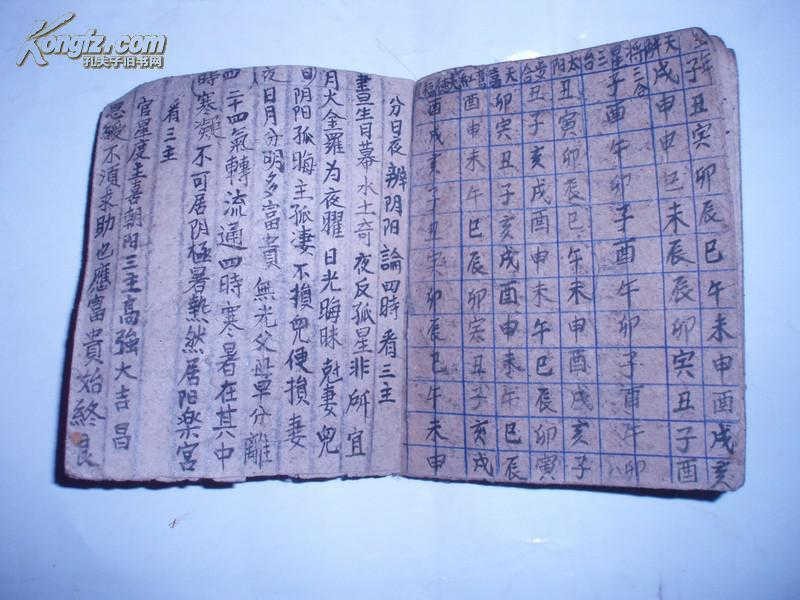 子丑寅卯辰巳午未申酉戌亥
天解戌申申巳未辰辰卯寅丑子酉
将星三合子酉午卯子酉午卯子酉午卯
太阳丑寅卯辰巳午未申酉戌亥子
合丑子亥戌酉申未午巳辰卯寅
天喜卯寅丑子亥戌酉申未午巳辰
酉申未午巳辰卯寅丑子亥戌
酉戌亥子丑寅卯辰巳午未申
分日夜辨阴阳論四時看三主
晝生日暮水土奇夜反孤星非所宜
月火金羅为夜曜日光晦昧尅妻兒
日阴阳孤晦主孤凄不損兒便損妻
夜日月分明多富貴無光父母早分離
四二十四氣轉流通四時寒暑在其中
時寒凝不可居阴極暑熱然居阳樂宮
看三主
官星度主喜朝阳三主高強大吉昌
恩不須求助也應富貴始終良
Kongfz.com
孔夫子旧书网